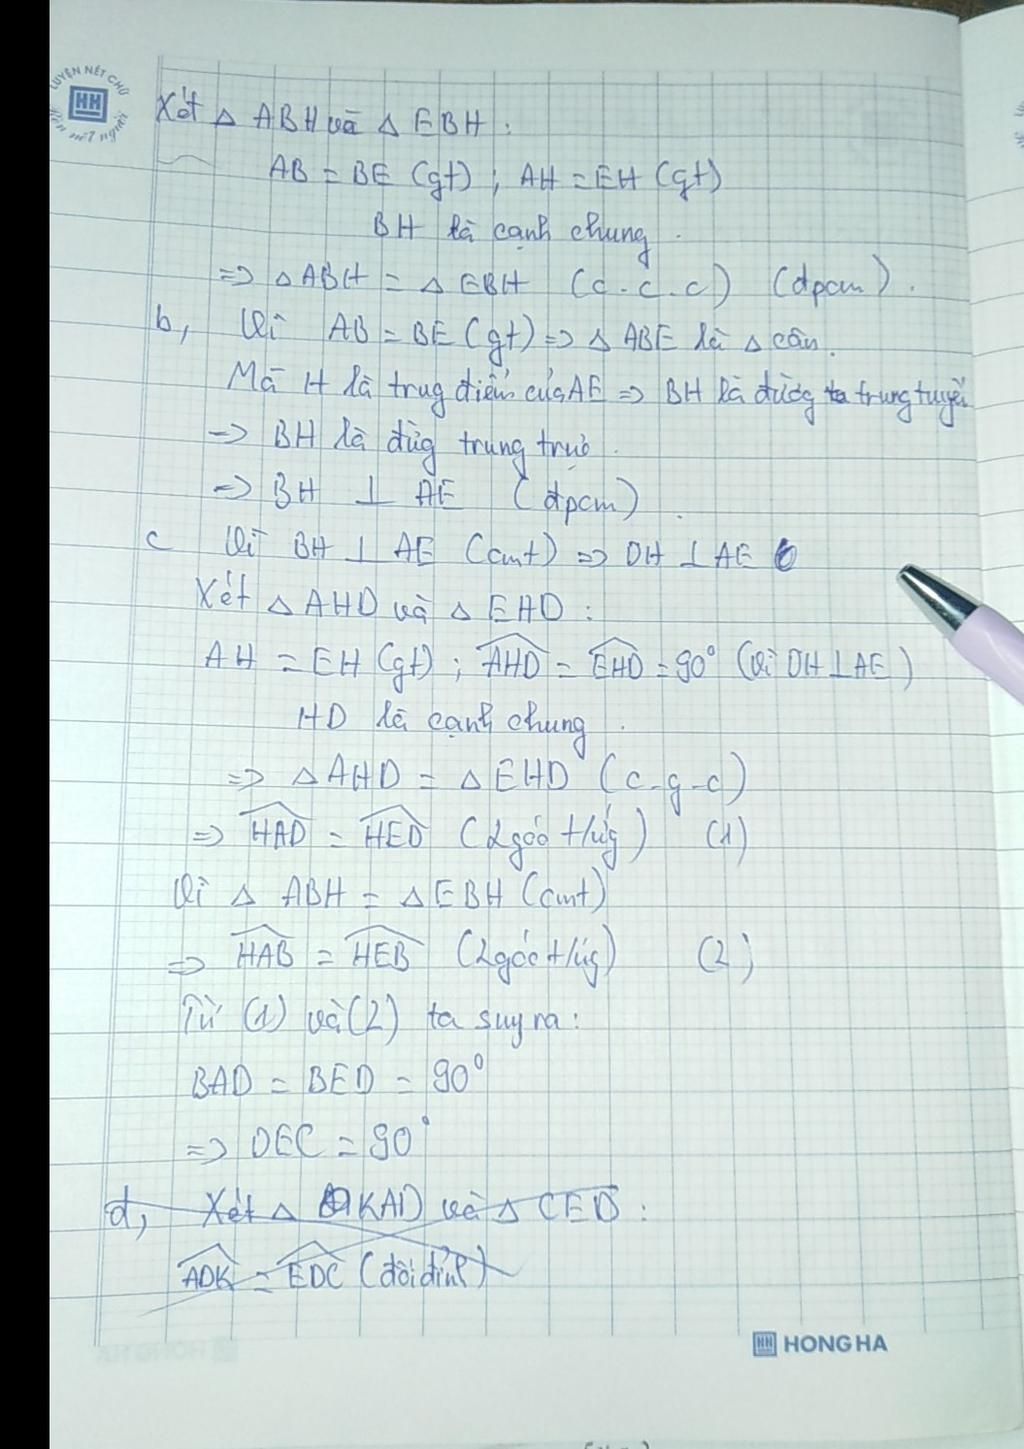 LUYỆN NÉT CHỮ
HH
Rèn nết người
Xét △ ABH và △ EBH :
AB = BE (gt) ; AH = EH (gt)
BH là cạnh chung .
=> △ ABH = △ EBH (c-c-c) (đpcm) .
b, Vì AB = BE (gt) => △ ABE là △ cân .
Mà H là trug điểm của AE => BH là đường trung tuyến
=> BH là đừg trung trực .
=> BH ⊥ AE (đpcm) .
c Vì BH ⊥ AE (cmt) => DH ⊥ AE
Xét △ AHD và △ EHD :
AH = EH (gt) ; AHD = EHD = 90° (Vì DH ⊥ AE)
HD là cạnh chung .
=> △ AHD = △ EHD (c-g-c)
=> HAD = HED (2 góc t/ứg) (1)
Vì △ ABH = △ EBH (cmt)
=> HAB = HEB (2 góc t/ứg) (2)
Từ (1) và (2) ta suy ra :
BAD = BED = 90°
=> DEC = 90°
d, Xét △ KAD và △ CED :
ADK = EDC (đối đỉnh)
HH HONG HA